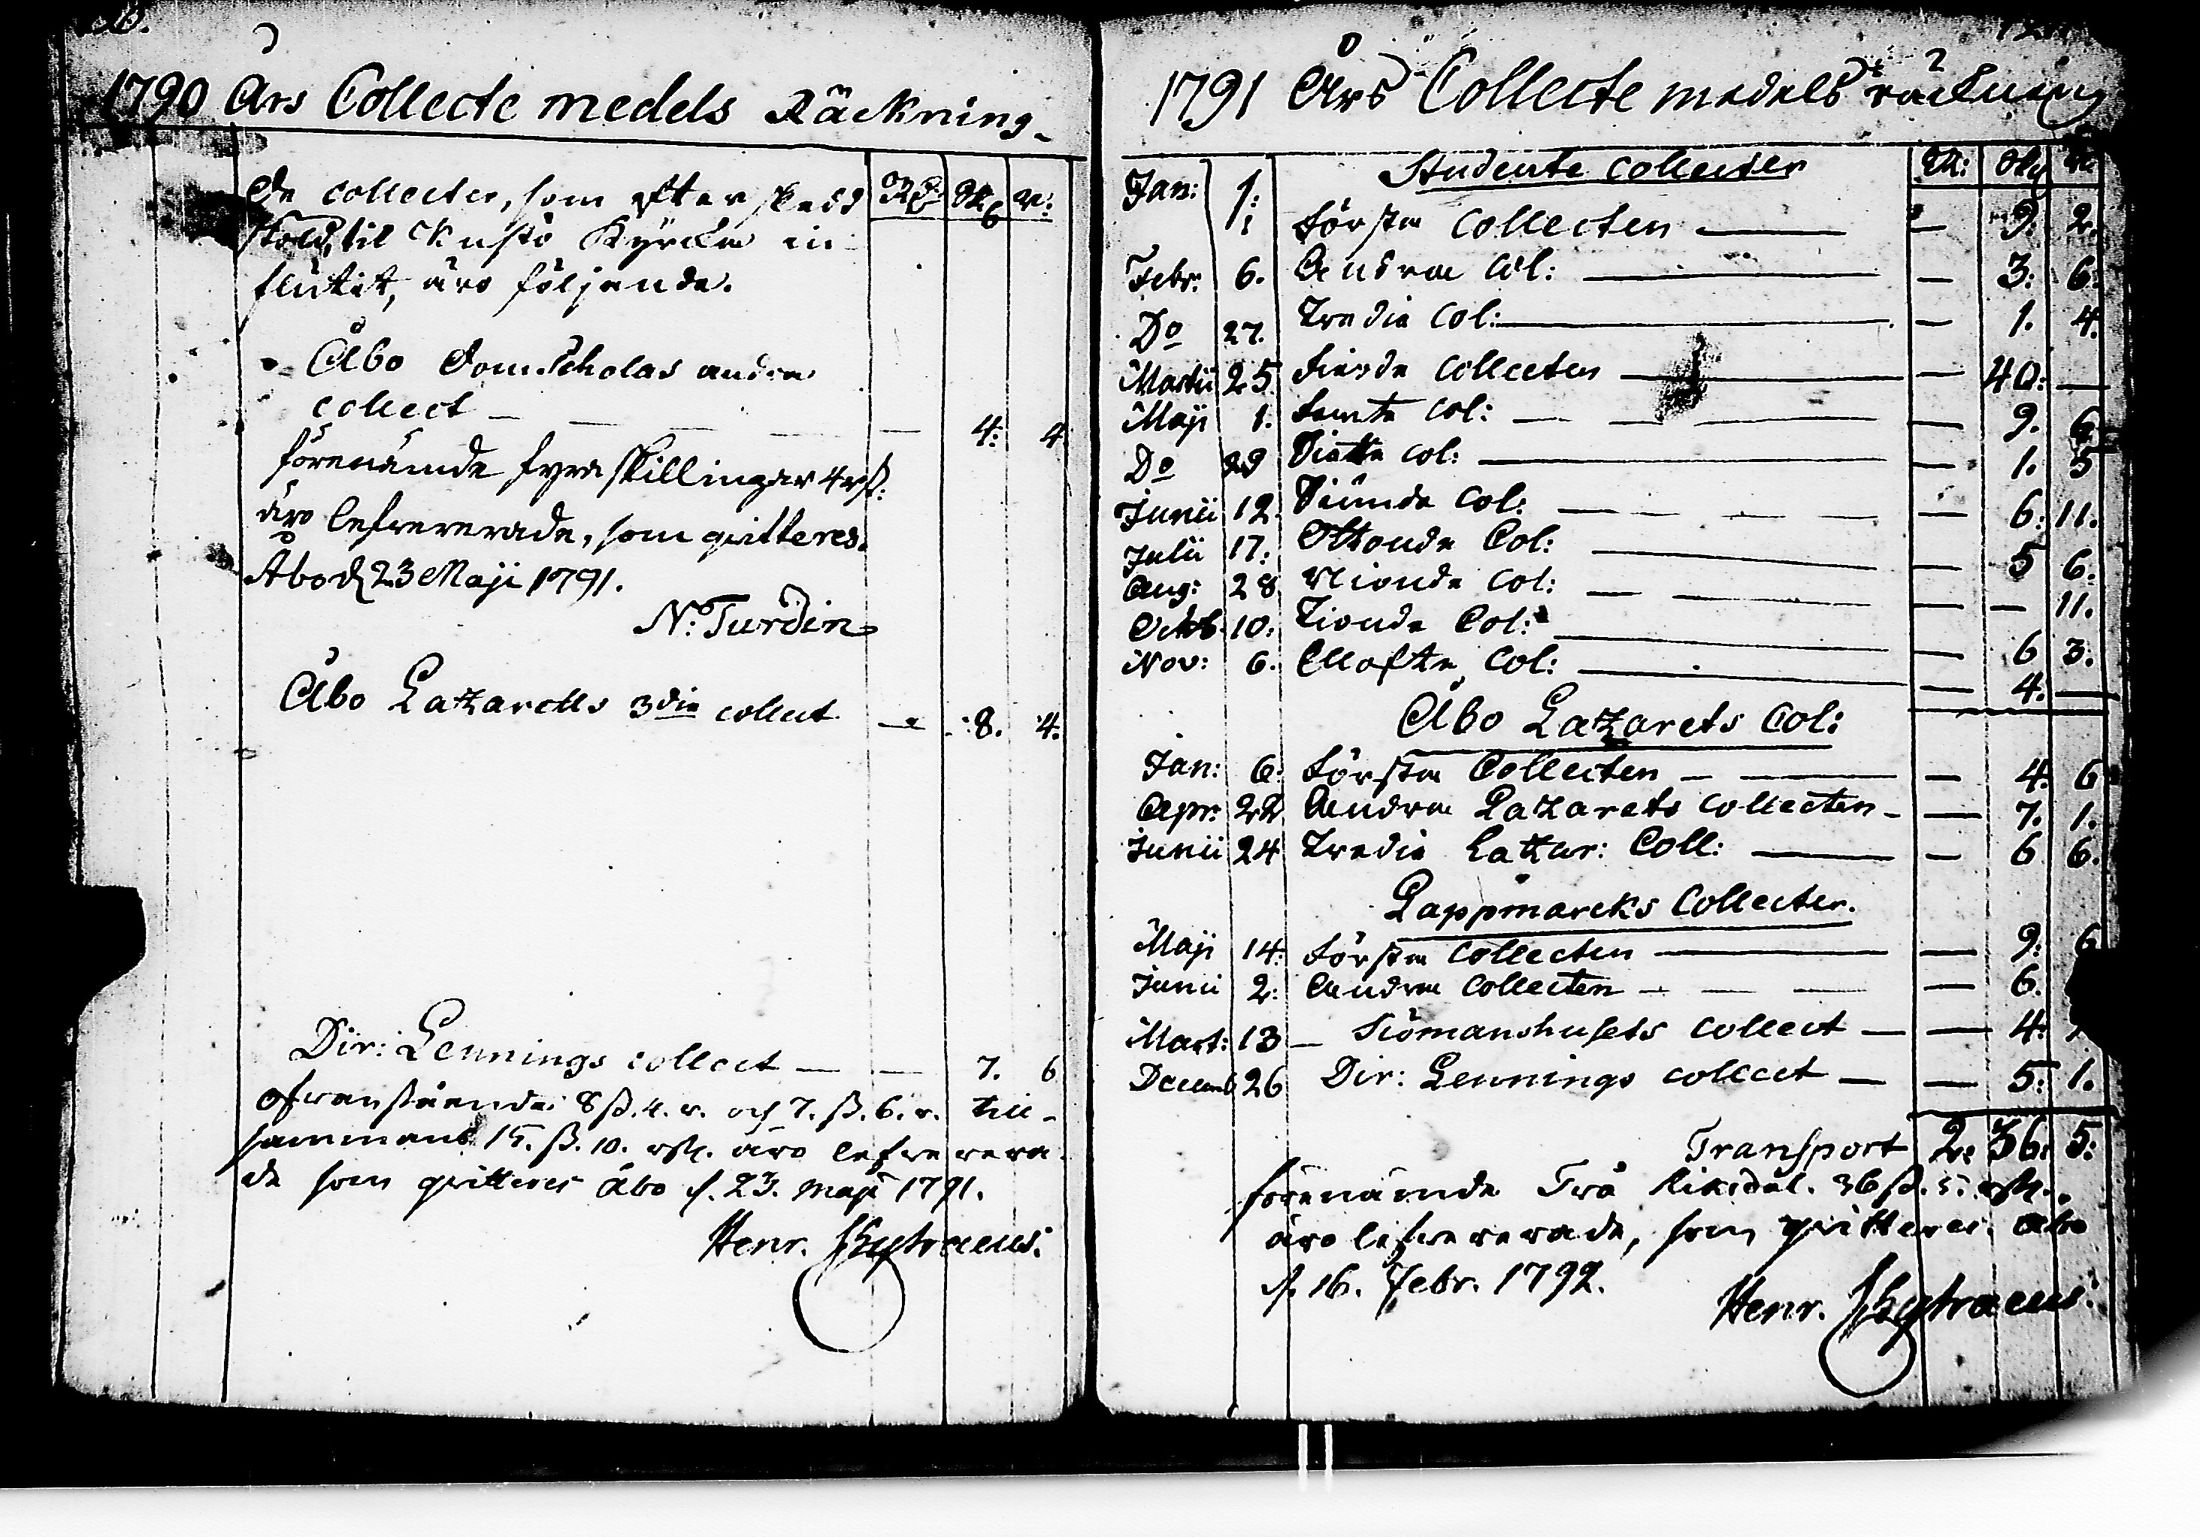 1790 Års Collecte medels Räckning
Rd Sk r:
De collecter, som efter skedd
til Kustö Kyrcka in
flutit, äro följande.
Åbo Dom Scholas andra
collect — — 4: 4
förenämde fyra skillingar 4 rs:
äro lefrererade, som qvitteres.
Åbo d 23 Maji 1791.
N: Turdin
Åbo Lazaretts 3die collect — 8. 4.
Dir: Lennings collect — — 7. 6
ofvanstående 8 ß. 4. r. och 7. ß. 6. r. till-
sammans 15. ß. 10. rst. äro lefrerera-
de som qvitteres Åbo d. 23. Maji 1791.
Henr. Skytraeus.
1791 Års Collecte medels räckning
Studente Collecter Rd: Sk r
Jan: 1. Första Collecten — — 9. 2.
Febr: 6. Andra Col: — — 3: 6:
Do 27. Tredie Col: — — 1. 4.
Martii 25 Fierde Collecten — — 40: —
Maji 1. Femte Col: — — 9. 6
Do 29 Siette Col: — — 1. 5
Junii 12. Siunde Col: — — 6: 11.
Julii 17: Ottonde Col: — — 5 6.
Aug: 28 Nionde Col: — — — 11.
Octob. 10: Tionde Col: — — 6 3.
Nov: 6. Ellofte Col: — — 4: —
Åbo Lazarets Col:
Jan: 6: Första Collecten — — 4. 6
Apr: 22 Andra Lazarets Collecten — — 7. 1.
Junii 24 Tredie Lazar: Coll: — — 6 6.
Lappmarcks Collecter.
Maji 14: Första Collecten — — 9: 6
Junii 2: Andra Collecten — — 6.
Mart: 13 — Siömanshusets Collect — — 4:
Decemb 26 Dir: Lennings collect — — 5: 1.
Transport 2: 36: 5:
förenämde Två Riksdal. 36 ß. 5. rst.
äro lefrererade, som qvitteres. Åbo
d. 16. Febr. 1792.
Henr. Skytraeus.